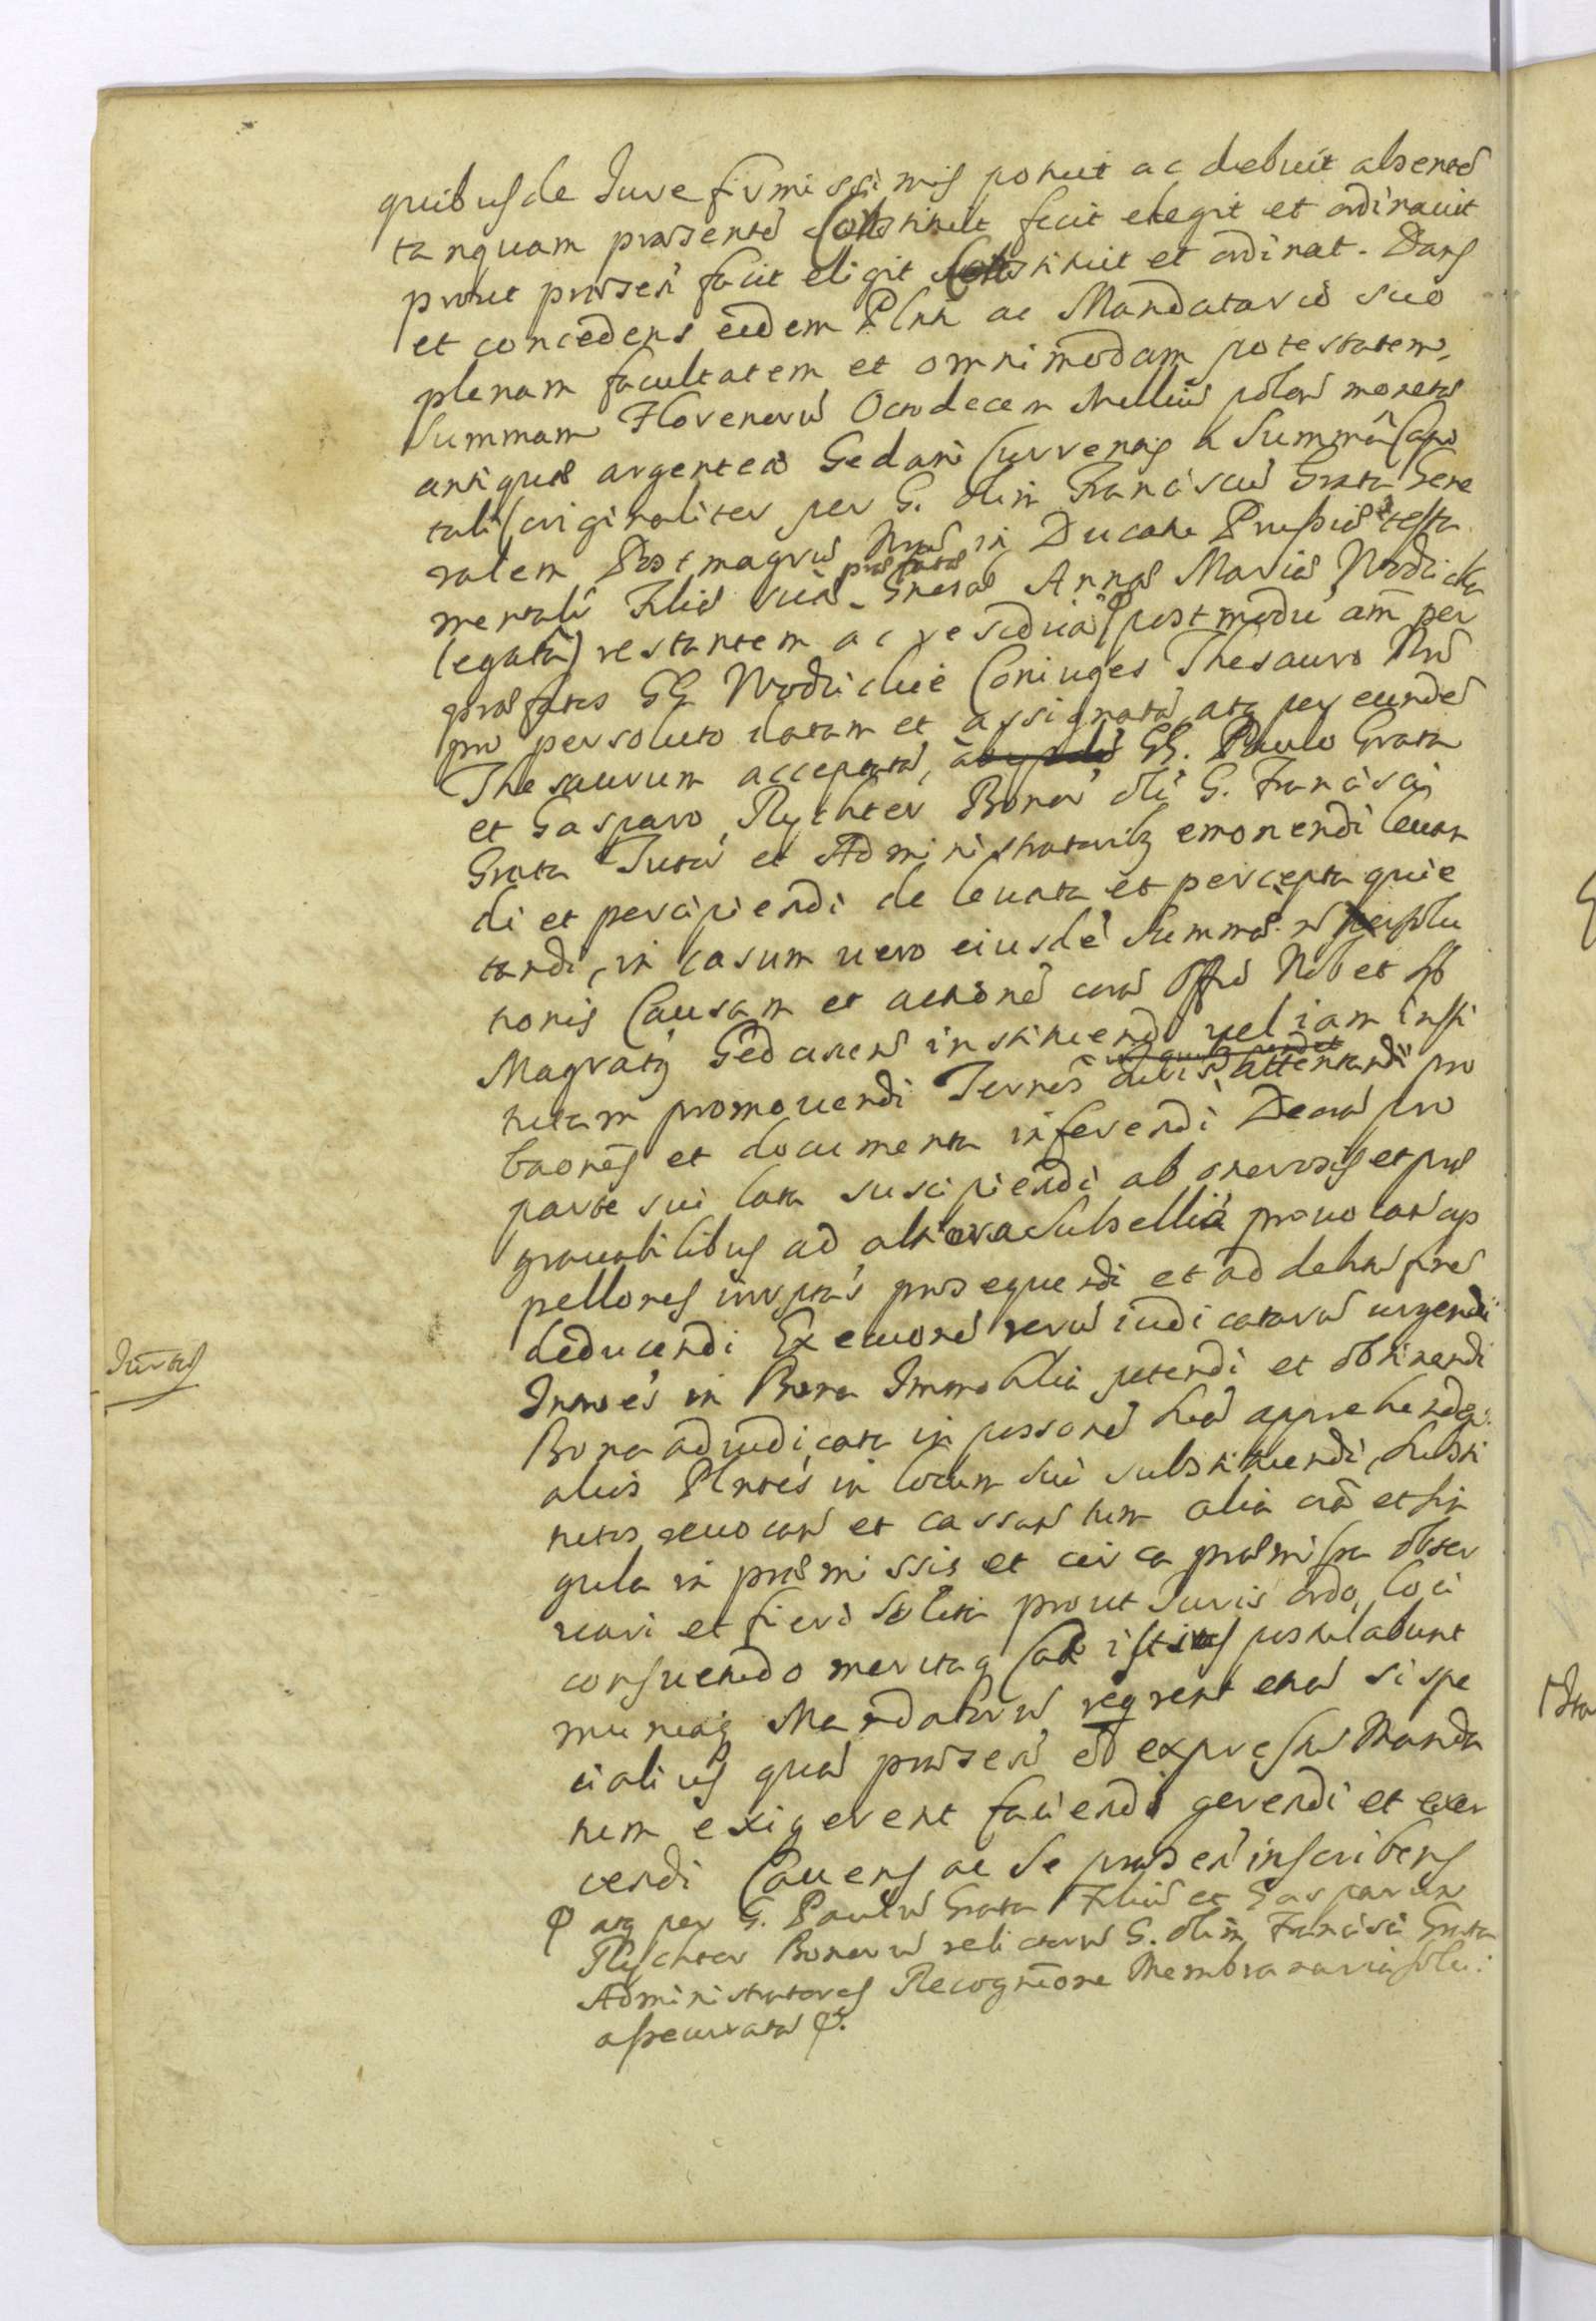 quibus de Jure firmissimis potuit ac debuit absentẽ
tanquam præsentẽ Constituit fecit elegit et ordinavit
prout præsen̄ facit eligit Constituit et ordinat. Dans
et concedens eidem Plnti ac Mandatario suo
plenam facultatem et omnimodam potestatem,
Summam Florenorũ Octodecem Mille põlon monetæ
antiquæ argenteæ Gedani Currentis a Summâ Capi
tali (originaliter per G. olim Franciscũ Grata Gene
ralem Postmagrũ Nrũ in Ducatu Prussiæ testa
mentali Filiæ suæ præfatæ Gnerosæ Annæ Mariæ Wodzicka
legatâ) restantem ac residuã φ postmodũ am̃ per
præfatos GG Wodzickie Coniuges Thesauro Nrõ
pro persoluto datam et assignatã atq per eundẽ
Thesaurum acceptatã, à GG. Paulo Grata
et Gasparo Rychter Bonor̃ oli G. Francisci
Grata Tutor̃ et Administratoribq emonendi levan
di et percipiendi de levata et percepta quie
tandi, in casum vero eiusdẽ Summæ ñ persolu
tionis Causam et actionẽ corã Offo Nob et
Magratq Gedanen̄ instituendi vel iam insti
tutam promovendi Termos attentandi pro
baones et documenta inferendi Decrã pro
parte sui lata suscipiendi ab onerosis et præ
gravatilibus ad altiora Subsellia provocan ap
pellones prosequendi et ad debitũ finẽ
deducendi Execuonẽ rerũ iudicatarũ urgendi
Inmoēs in Bona Immobilia petendi et obtinendi
Bona adiudicata in possonẽ suã apprehendendi
alios Plntes in locum sui substituendi, Substi
tutos revocan̄ et cassan̄ tum alia oĩa et sin
gula in præmissis et circa præmissa obser
vari et fieri solita prout Juris ordo, loci
consuetudo meritaq Cae istius postulabunt
muniaq Mandatorũ reqrent etiã si spe
cialius quã præsens est expressũ Manda
tum exigerent faciendi gerendi et exer
cendi Cavens ac se præsen̄ inscribens
φ atq per G. Paulũ Grata Filiũ et Gasparum
Rychter Bonorũ relictorũ G. olim Francisci Grata
Administratores Recognitione Membranaria
assecuratã φ.
Inr̃tus